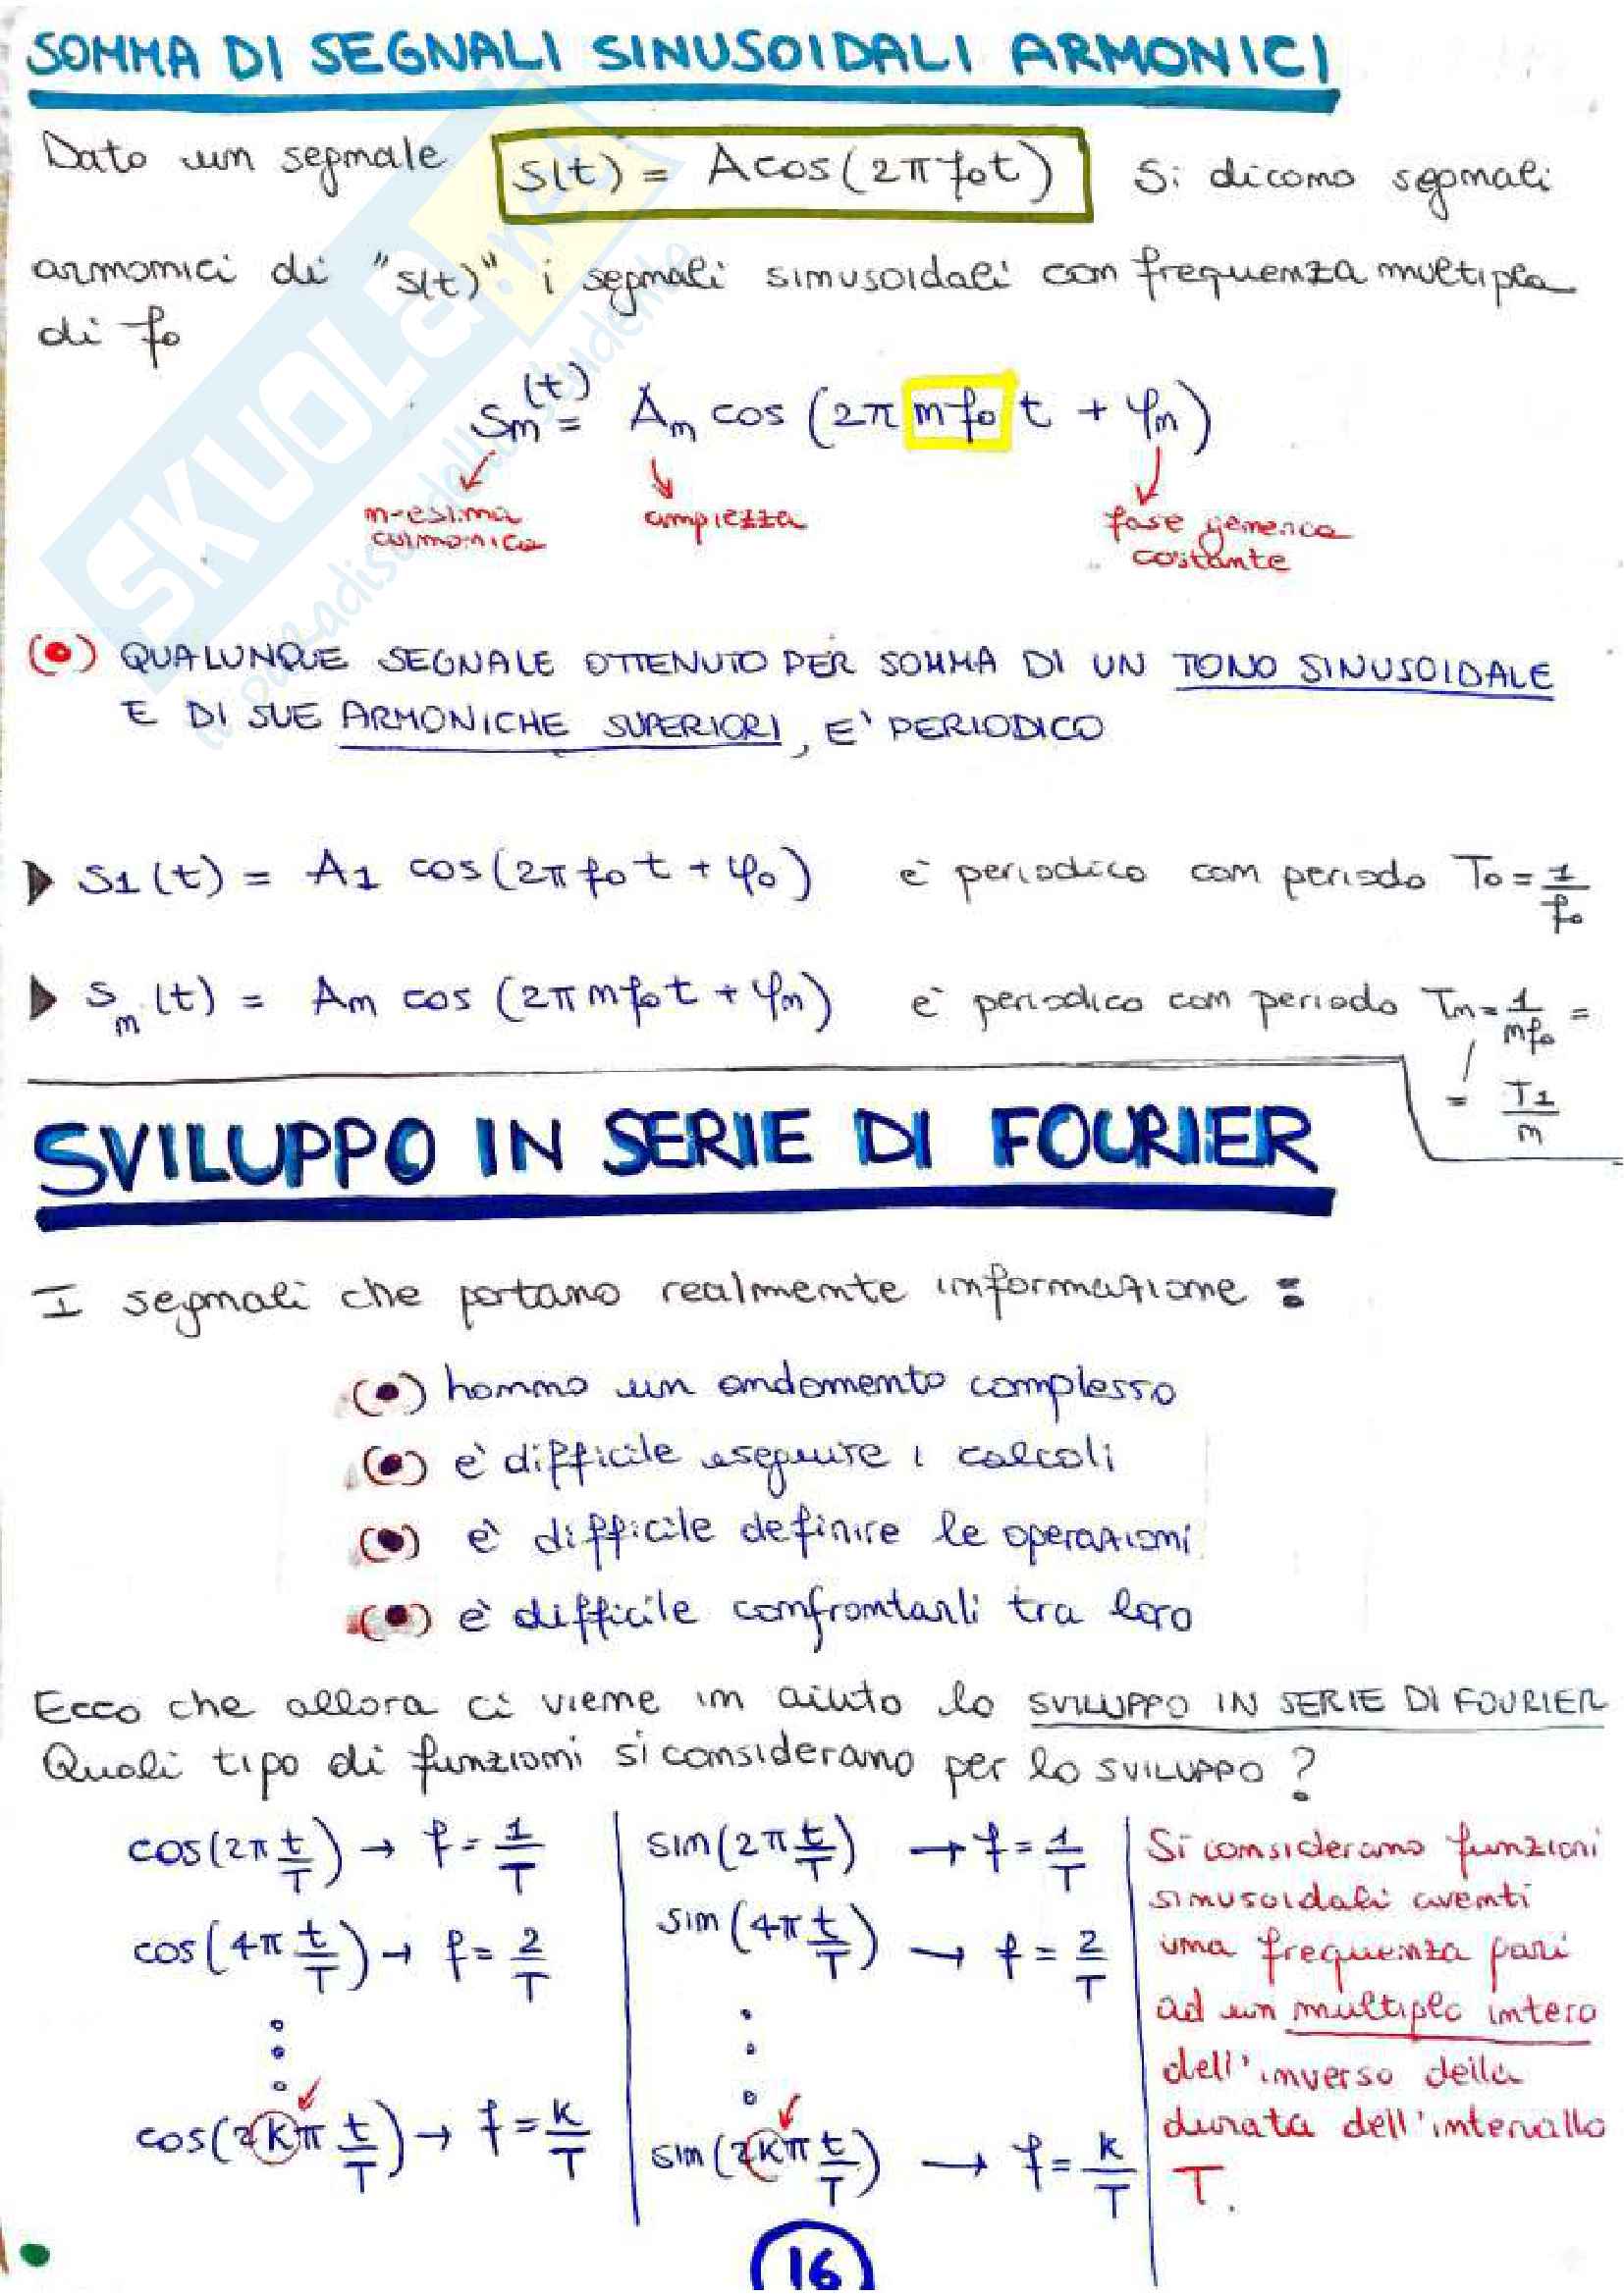 SOMMA DI SEGNALI SINUSOIDALI ARMONICI
Dato un segnale s(t) = A cos(2π f₀t) Si dicono segnali
armonici di "s(t)" i segnali sinusoidali con frequenza multipla
di f₀
Sₙ(t) = Aₙ cos (2π n f₀ t + φₙ)
n-esima armonica
ampiezza
fase generica costante
(•) QUALUNQUE SEGNALE OTTENUTO PER SOMMA DI UN TONO SINUSOIDALE
E DI SUE ARMONICHE SUPERIORI, E' PERIODICO
▶ S1(t) = A1 cos(2π f₀ t + φ₀) è periodico con periodo T₀ = 1/f₀
▶ Sₙ(t) = Aₙ cos (2π n f₀ t + φₙ) è periodico con periodo Tₙ = 1/nf₀ =
= T1/n
SVILUPPO IN SERIE DI FOURIER
I segnali che portano realmente informazione :
(•) hanno un andamento complesso
(•) è difficile eseguire i calcoli
(•) è difficile definire le operazioni
(•) è difficile confrontarli tra loro
Ecco che allora ci viene in aiuto lo SVILUPPO IN SERIE DI FOURIER
Quali tipo di funzioni si considerano per lo SVILUPPO ?
cos(2π t/T) → f = 1/T
cos(4π t/T) → f = 2/T
cos(2kπ t/T) → f = k/T
sin(2π t/T) → f = 1/T
sin(4π t/T) → f = 2/T
sin(2kπ t/T) → f = k/T
Si considerano funzioni
sinusoidali aventi
una frequenza pari
ad un multiplo intero
dell'inverso della
durata dell'intervallo
T.
16
SKUOLA.net
il paradiso dello studente